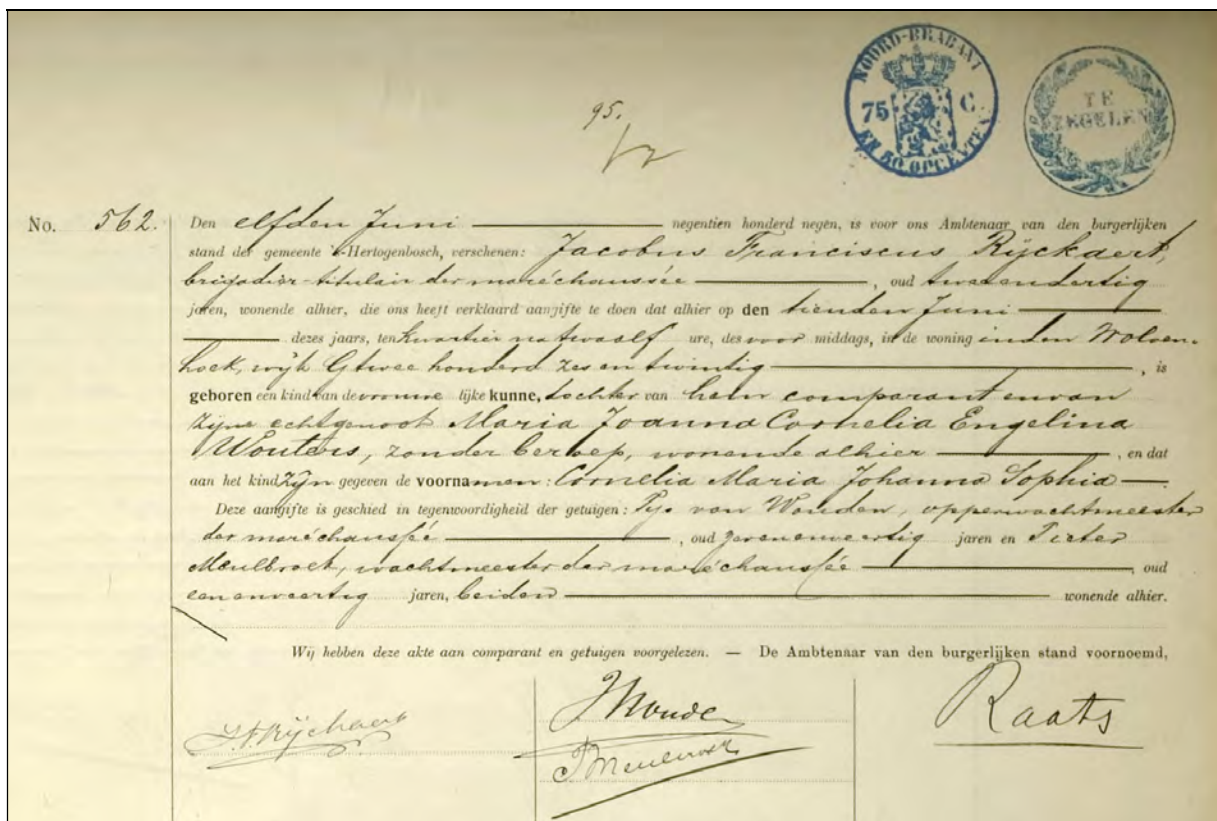 NOORD-BRABANT
75 C.
EN 50 OPCENTEN
TE
ZEGELEN
95.
No. 562. Den elfden Juni negentien honderd negen, is voor ons Ambtenaar van den burgerlijken
stand der gemeente 's-Hertogenbosch, verschenen: Jacobus Franciscus Rijckaert,
brigadier-titulair der maréchaussée , oud tweeendertig
jaren, wonende alhier, die ons heeft verklaard aangifte te doen dat alhier op den tienden Juni
dezes jaars, ten kwartier na twaalf ure, des voor middags, in de woning in den Wolven-
hoek, wijk G twee honderd zes en twintig , is
geboren een kind van de vrouwe lijke kunne, dochter van hem comparant en van
zijne echtgenoot Maria Joanna Cornelia Engelina
Wouters, zonder beroep, wonende alhier , en dat
aan het kind zijn gegeven de voornamen: Cornelia Maria Johanna Sophia .
Deze aangifte is geschied in tegenwoordigheid der getuigen: van Wouden, opperwachtmeester
der maréchaussée , oud zevenenveertig jaren en Pieter
Meulbroek, wachtmeester der maréchaussée , oud
eenenveertig jaren, beiden wonende alhier.
Wij hebben deze akte aan comparant en getuigen voorgelezen. — De Ambtenaar van den burgerlijken stand voornoemd,
J.F. Rijckaert
Raats